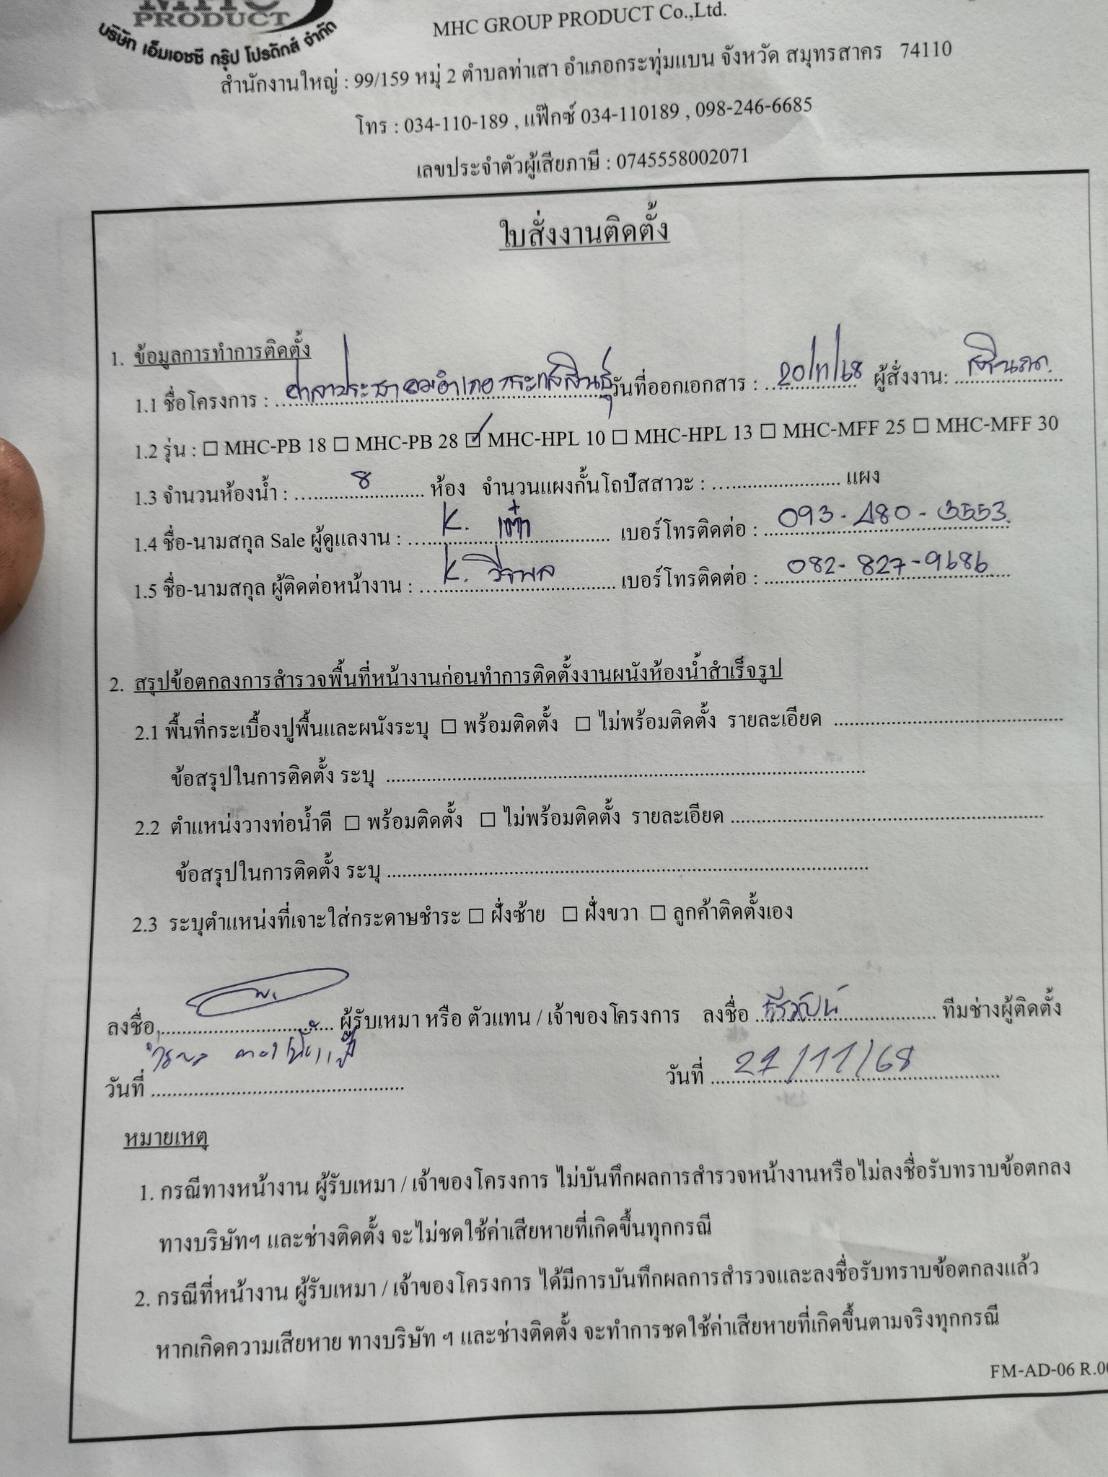 MHC
PRODUCT
บริษัท เอ็มเอชซี กรุ๊ป โปรดักส์ จำกัด
MHC GROUP PRODUCT Co.,Ltd.
สำนักงานใหญ่ : 99/159 หมู่ 2 ตำบลท่าเสา อำเภอกระทุ่มแบน จังหวัด สมุทรสาคร 74110
โทร : 034-110-189 , แฟ๊กซ์ 034-110189 , 098-246-6685
เลขประจำตัวผู้เสียภาษี : 0745558002071
ใบสั่งงานติดตั้ง
1. ข้อมูลการทำการติดตั้ง
1.1 ชื่อโครงการ : ศาลาประชาคมอำเภอ วันที่ออกเอกสาร : 20/11/68 ผู้สั่งงาน:
1.2 รุ่น : ☐ MHC-PB 18 ☐ MHC-PB 28 ☑ MHC-HPL 10 ☐ MHC-HPL 13 ☐ MHC-MFF 25 ☐ MHC-MFF 30
1.3 จำนวนห้องน้ำ : 8 ห้อง จำนวนแผงกั้นโถปัสสาวะ : ........................ แผง
1.4 ชื่อ-นามสกุล Sale ผู้ดูแลงาน : K. เบอร์โทรติดต่อ : 093-480-3553
1.5 ชื่อ-นามสกุล ผู้ติดต่อหน้างาน : K. วีรพล เบอร์โทรติดต่อ : 082-827-9686
2. สรุปข้อตกลงการสำรวจพื้นที่หน้างานก่อนทำการติดตั้งงานผนังห้องน้ำสำเร็จรูป
2.1 พื้นที่กระเบื้องปูพื้นและผนังระบุ ☐ พร้อมติดตั้ง ☐ ไม่พร้อมติดตั้ง รายละเอียด ........................
ข้อสรุปในการติดตั้ง ระบุ ........................
2.2 ตำแหน่งวางท่อน้ำดี ☐ พร้อมติดตั้ง ☐ ไม่พร้อมติดตั้ง รายละเอียด ........................
ข้อสรุปในการติดตั้ง ระบุ ........................
2.3 ระบุตำแหน่งที่เจาะใส่กระดาษชำระ ☐ ฝั่งซ้าย ☐ ฝั่งขวา ☐ ลูกค้าติดตั้งเอง
ลงชื่อ ........................ ผู้รับเหมา หรือ ตัวแทน / เจ้าของโครงการ ลงชื่อ ธีรวัฒน์ ทีมช่างผู้ติดตั้ง
วันที่ ........................ วันที่ 21/11/68
หมายเหตุ
1. กรณีทางหน้างาน ผู้รับเหมา / เจ้าของโครงการ ไม่บันทึกผลการสำรวจหน้างานหรือไม่ลงชื่อรับทราบข้อตกลง
ทางบริษัทฯ และช่างติดตั้ง จะไม่ชดใช้ค่าเสียหายที่เกิดขึ้นทุกกรณี
2. กรณีที่หน้างาน ผู้รับเหมา / เจ้าของโครงการ ได้มีการบันทึกผลการสำรวจและลงชื่อรับทราบข้อตกลงแล้ว
หากเกิดความเสียหาย ทางบริษัท ฯ และช่างติดตั้ง จะทำการชดใช้ค่าเสียหายที่เกิดขึ้นตามจริงทุกกรณี
FM-AD-06 R.00